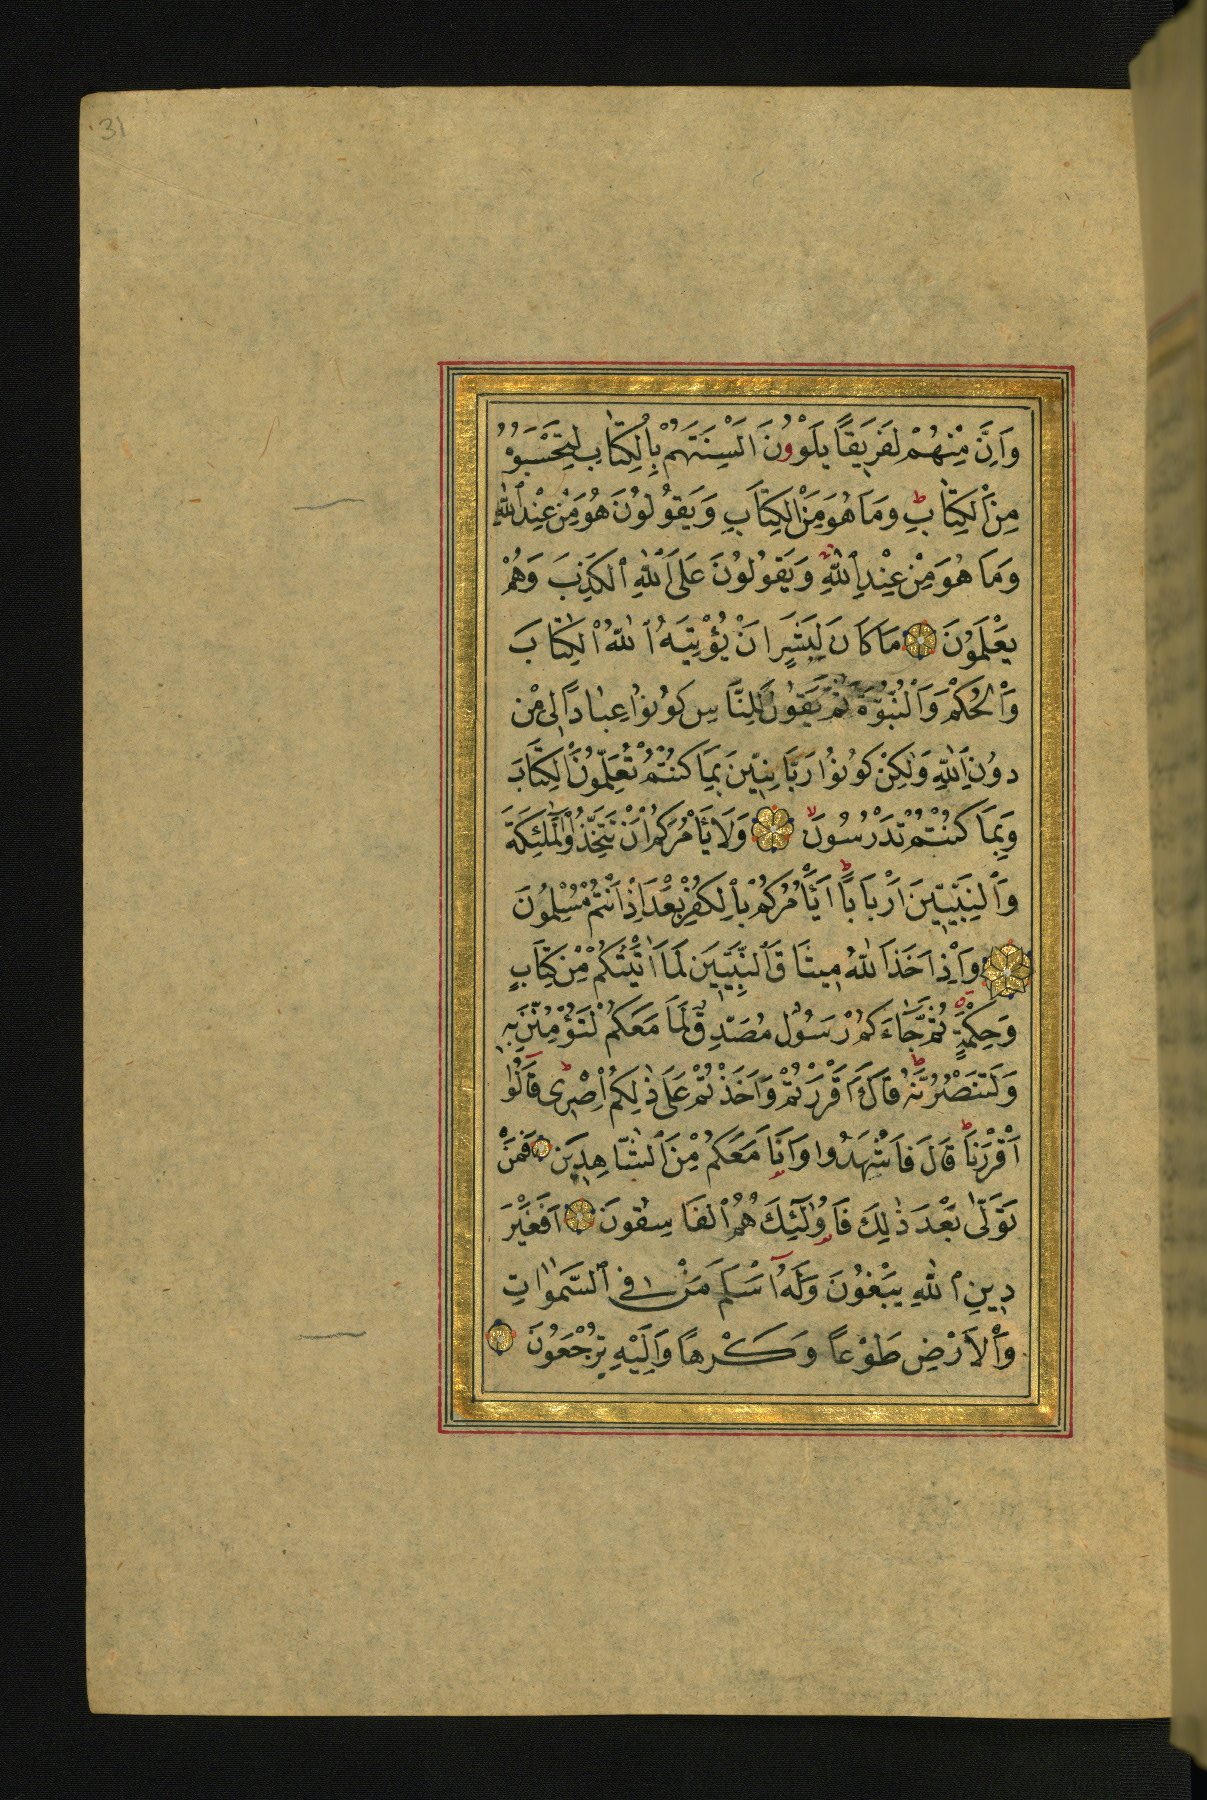 31
وَاِنَّ مِنْهُمْ لَفَرِيقًا يَلْوُونَ اَلْسِنَتَهُمْ بِالْكِتَابِ لِتَحْسَبُوهُ
مِنَ الْكِتَابِ ط وَمَا هُوَ مِنَ الْكِتَابِ وَيَقُولُونَ هُوَ مِنْ عِنْدِ اللّٰهِ
وَمَا هُوَ مِنْ عِنْدِ اللّٰهِ وَيَقُولُونَ عَلَى اللّٰهِ الْكَذِبَ وَهُمْ
يَعْلَمُونَ مَا كَانَ لِبَشَرٍ اَنْ يُؤْتِيَهُ اللّٰهُ الْكِتَابَ
وَالْحُكْمَ وَالنُّبُوَّةَ ثُمَّ يَقُولَ لِلنَّاسِ كُونُوا عِبَادًا لِى مِنْ
دُونِ اللّٰهِ وَلٰكِنْ كُونُوا رَبَّانِيّٖنَ بِمَا كُنْتُمْ تُعَلِّمُونَ الْكِتَابَ
وَبِمَا كُنْتُمْ تَدْرُسُونَ لا وَلَا يَأْمُرَكُمْ اَنْ تَتَّخِذُوا الْمَلٰئِكَةَ
وَالنَّبِيّٖنَ اَرْبَابًا ط اَيَأْمُرُكُمْ بِالْكُفْرِ بَعْدَ اِذْ اَنْتُمْ مُسْلِمُونَ
وَاِذْ اَخَذَ اللّٰهُ مِيثَاقَ النَّبِيّٖنَ لَمَا اٰتَيْتُكُمْ مِنْ كِتَابٍ
وَحِكْمَةٍ ثُمَّ جَاءَكُمْ رَسُولٌ مُصَدِّقٌ لِمَا مَعَكُمْ لَتُؤْمِنُنَّ بِهٖ
وَلَتَنْصُرُنَّهُ ط قَالَ ءَاَقْرَرْتُمْ وَاَخَذْتُمْ عَلٰى ذٰلِكُمْ اِصْرِى ط قَالُوا
اَقْرَرْنَا ط قَالَ فَاشْهَدُوا وَاَنَا مَعَكُمْ مِنَ الشَّاهِدِينَ فَمَنْ
تَوَلّٰى بَعْدَ ذٰلِكَ فَاُولٰئِكَ هُمُ الْفَاسِقُونَ اَفَغَيْرَ
دِينِ اللّٰهِ يَبْغُونَ وَلَهُ اَسْلَمَ مَنْ فِى السَّمٰوَاتِ
وَالْاَرْضِ طَوْعًا وَكَرْهًا وَاِلَيْهِ يُرْجَعُونَ